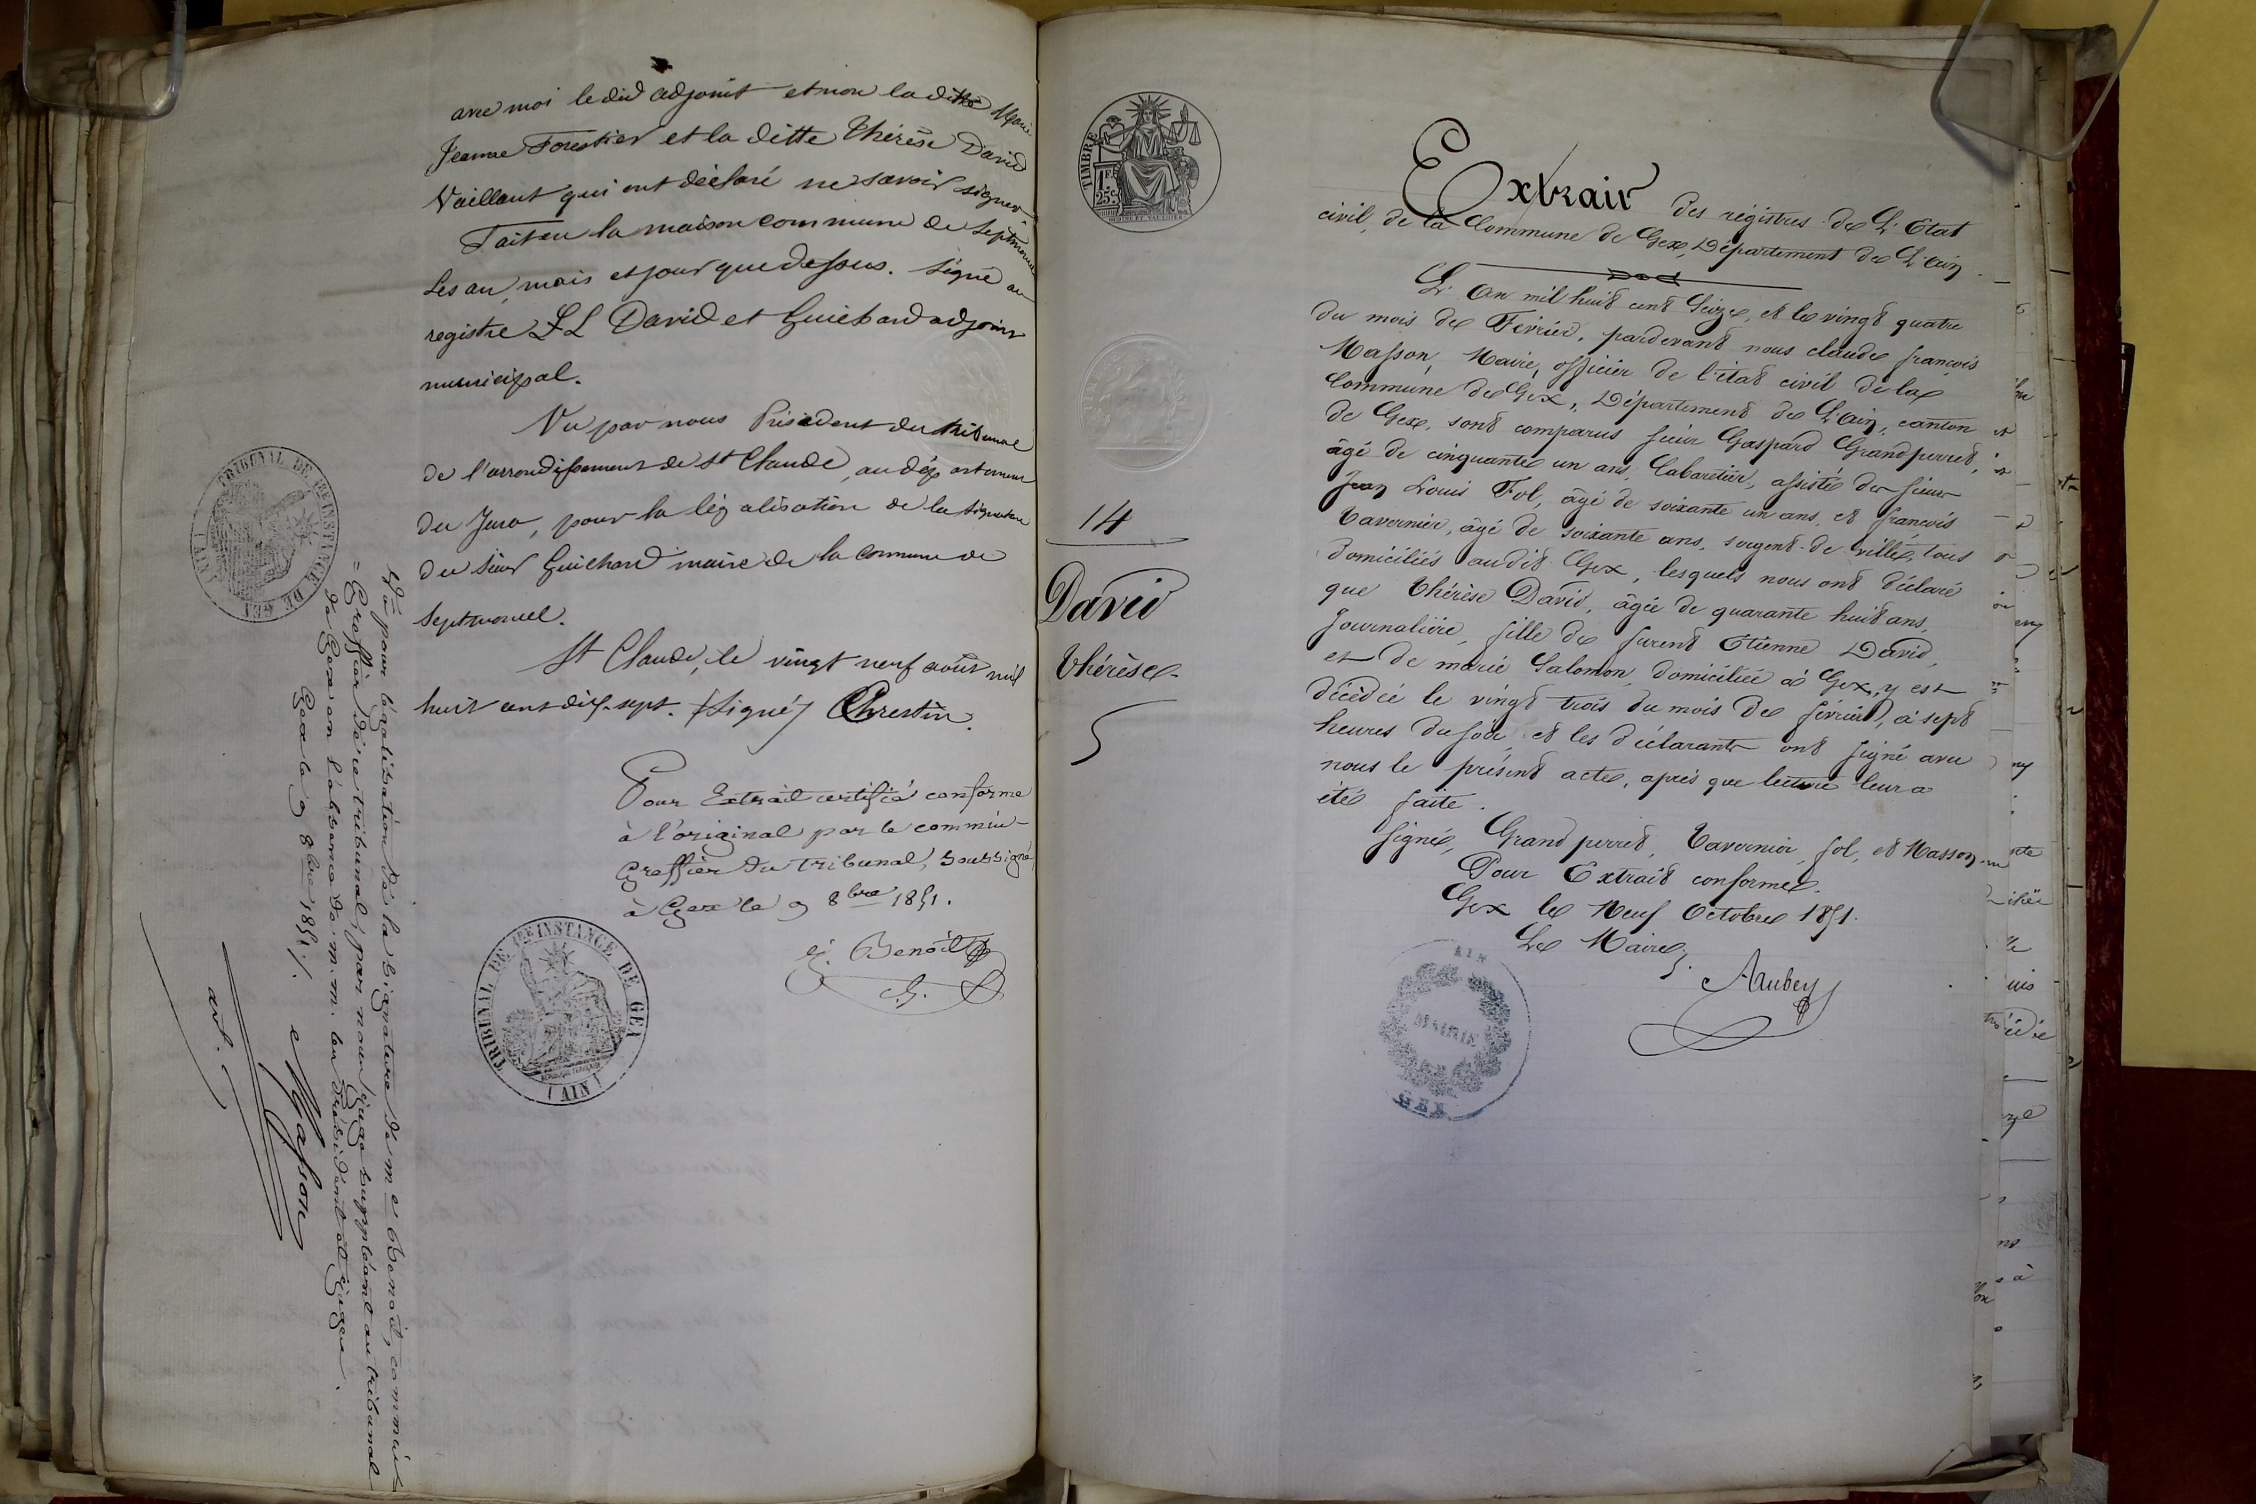 avec moi le dit adjoint et non la ditte Marie
Jeanne Forestier et la ditte Thérèse David
Vaillant qui ont déclaré ne savoir signer.
Fait en la maison commune de Septmoncel
Les an, mois et jour que dessus. Signé au
registre F L David et Guichard adjoint
municipal.
Vu par nous Président du tribunal
de l'arrondissement de St Claude, au département
du Jura, pour la légalisation de la signature
du sieur Guichard maire de la commune de
Septmoncel.
St Claude, le vingt neuf août mil
huit cent dix-sept. (signé) Chrestin.
Pour Extrait certifié conforme
à l'original par le commis-
Greffier du tribunal, soussigné
à Gex le 9 8bre 1851.
Benoît
TRIBUNAL DE 1RE INSTANCE DE GEX
(AIN)
Vu pour légalisation de la signature de me Benoît, commis
= Greffier de ce tribunal, par nous juge suppléant au tribunal
de Gex en l'absence de m.m. les Président et juges.
Gex le 9 8bre 1851 ./.
Masson
TRIBUNAL DE 1RE INSTANCE DE GEX
(AIN)
TIMBRE
1F.
25c.
14
David
Thérèse
5
Extrait des régistres de L'Etat
civil, de la Commune de Gex, Département de L'Ain.
L'An mil huit cent Seize, et le vingt quatre
du mois de Février, pardevant nous claude françois
Masson, Maire, officier de l'état civil de la
Commune de Gex, Département de L'Ain, canton
de Gex, sont comparus sieur Gaspard Grandperret,
âgé de cinquante un ans, Cabaretier, assisté des sieurs
Jean Louis Fol, âgé de soixante un ans, et françois
Tavernier, âgé de soixante ans, sergent de ville, tous
domiciliés audit Gex, lesquels nous ont déclaré
que Thérèse David, âgée de quarante huit ans,
Journalière, fille de furent Etienne David,
et de marie Salomon, domiciliée à Gex, y est
décédée le vingt trois du mois de février, à sept
heures du soir et les déclarants ont signé avec
nous le présent acte, après que lecture leur a
été faite.
Signé, Grandperret, Tavernier, fol, et Masson
Pour Extrait conforme.
Gex le Neuf Octobre 1851.
Le Maire,
AIN
MAIRIE
GEX